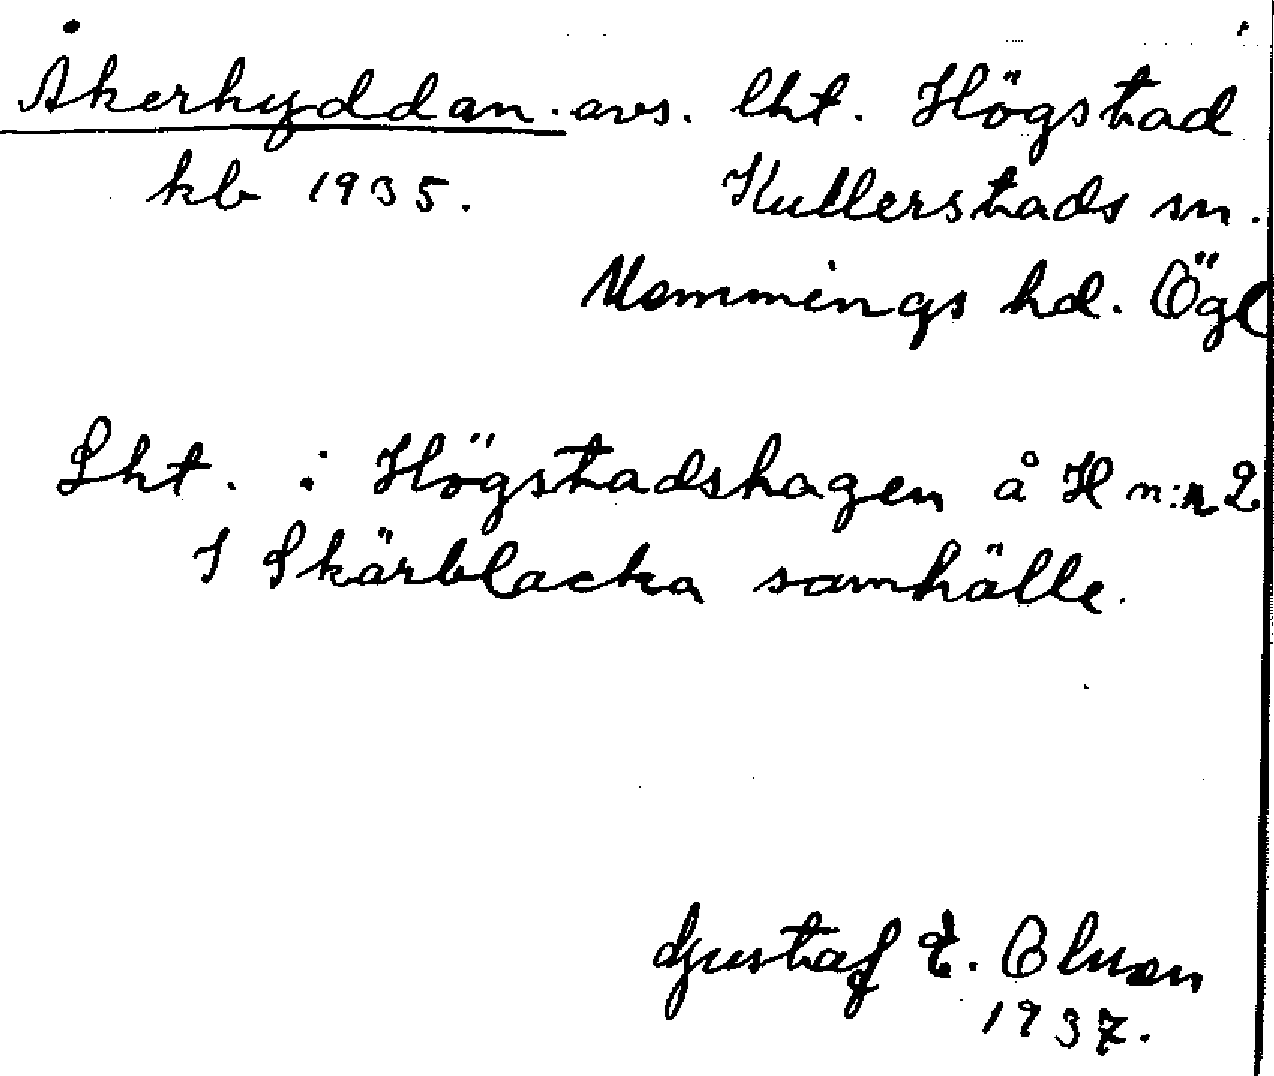 Åkerhyddan. avs. lht. Högstad
kb 1935. Kullerstads sn.
Memmings hd. Ögl
Lht. i Högstadshagen å H n:r 2
I Skärblacka samhälle.
Gustaf E. Olsson
1937.